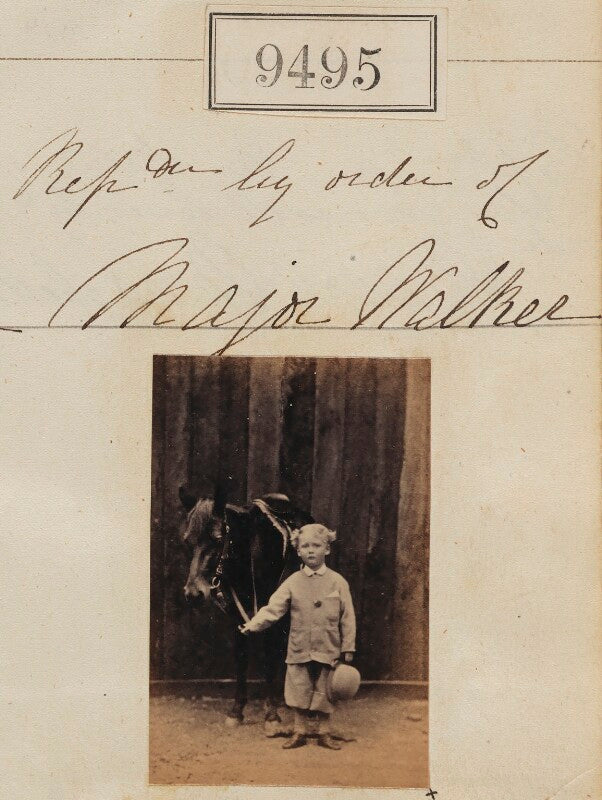 9495
Rep dn by order of
Major Walker